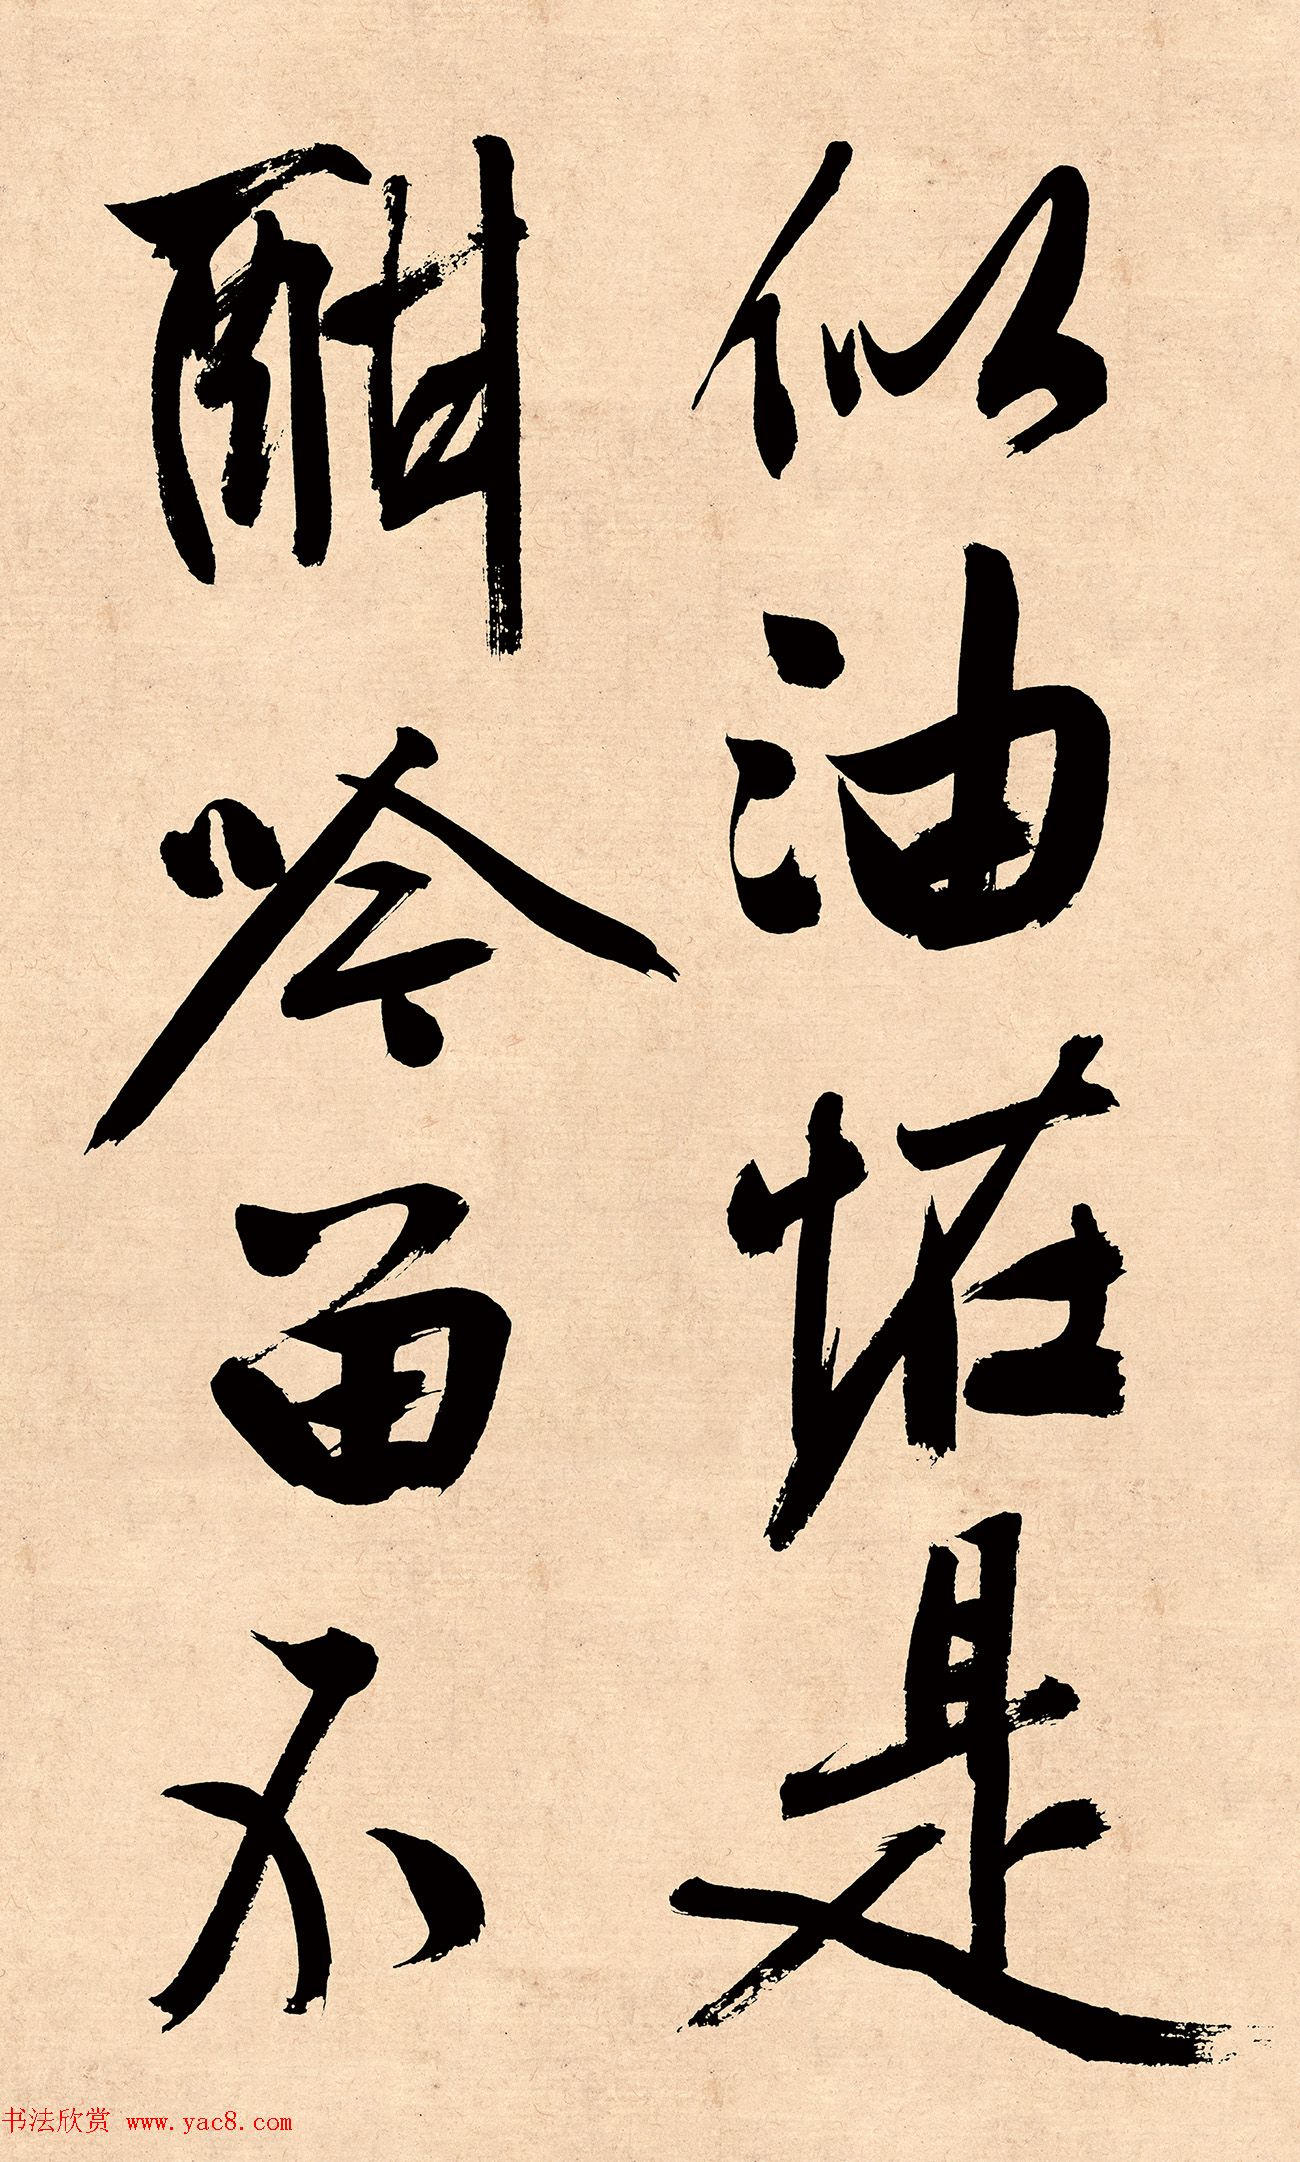 似油恠是
酣吟留不
书法欣赏 www.yac8.com